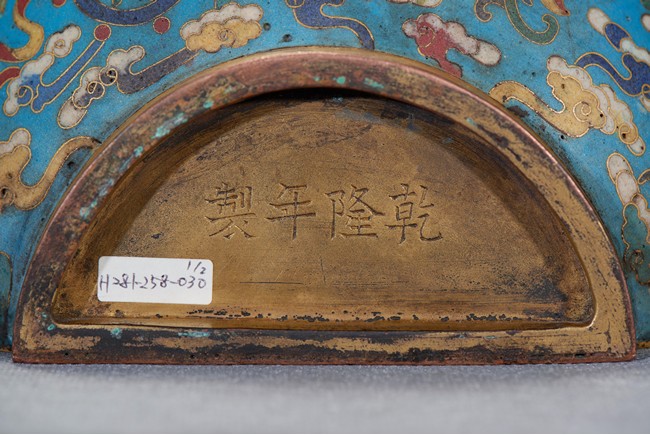 乾隆年製
1/2
H281-258-030